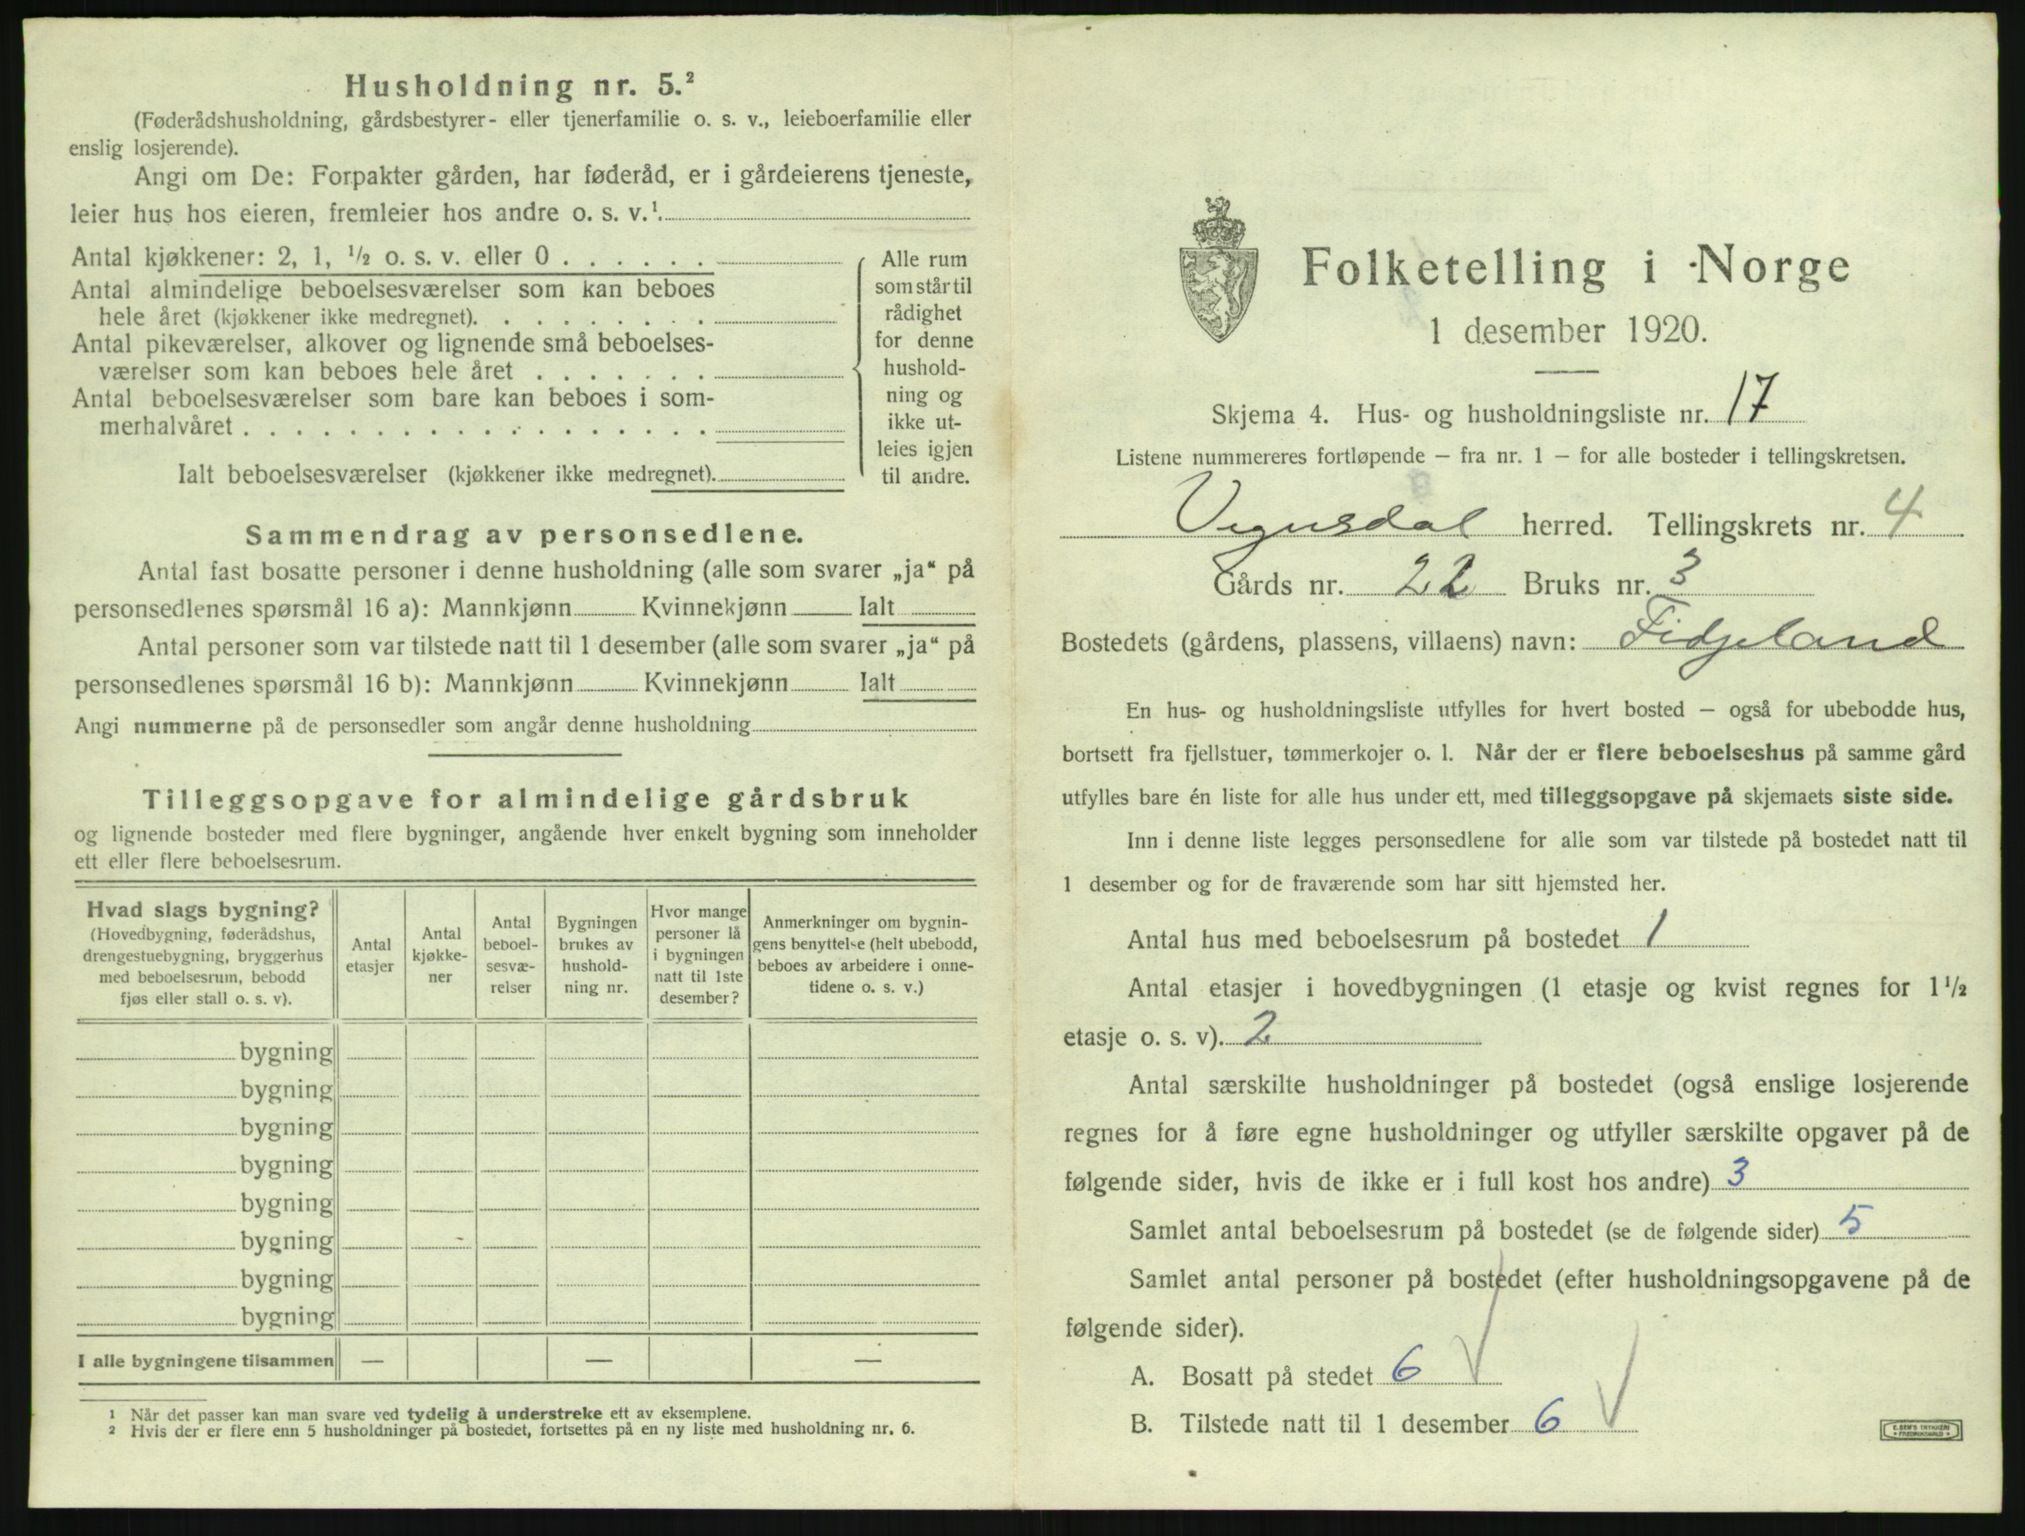 Husholdning nr. 5.²
(Føderådshusholdning, gårdsbestyrer- eller tjenerfamilie o. s. v., leieboerfamilie eller
enslig losjerende).
Angi om De: Forpakter gården, har føderåd, er i gårdeierens tjeneste,
leier hus hos eieren, fremleier hos andre o. s. v.¹
Antal kjøkkener: 2, 1, ½ o. s. v. eller 0 . . . . . .
Antal almindelige beboelsesværelser som kan beboes
hele året (kjøkkener ikke medregnet). . . . . . . . .
Antal pikeværelser, alkover og lignende små beboelses-
værelser som kan beboes hele året . . . . . . .
Antal beboelsesværelser som bare kan beboes i som-
merhalvåret . . . . . . . . . . . . . . . . . .
Ialt beboelsesværelser (kjøkkener ikke medregnet).
Alle rum
som står til
rådighet
for denne
hushold-
ning og
ikke ut-
leies igjen
til andre.
Sammendrag av personsedlene.
Antal fast bosatte personer i denne husholdning (alle som svarer „ja“ på
personsedlenes spørsmål 16 a): Mannkjønn Kvinnekjønn Ialt
Antal personer som var tilstede natt til 1 desember (alle som svarer „ja“ på
personsedlenes spørsmål 16 b): Mannkjønn Kvinnekjønn Ialt
Angi nummerne på de personsedler som angår denne husholdning
Tilleggsopgave for almindelige gårdsbruk
og lignende bosteder med flere bygninger, angående hver enkelt bygning som inneholder
ett eller flere beboelsesrum.
Hvad slags bygning?
(Hovedbygning, føderådshus,
drengestuebygning, bryggerhus
med beboelsesrum, bebodd
fjøs eller stall o. s. v).
Antal
etasjer
Antal
kjøkke-
ner
Antal
beboel-
sesvæ-
relser
Bygningen
brukes av
hushold-
ning nr.
Hvor mange
personer lå
i bygningen
natt til 1ste
desember?
Anmerkninger om bygnin-
gens benyttelse (helt ubebodd,
beboes av arbeidere i onne-
tidene o. s. v.)
bygning
bygning
bygning
bygning
bygning
bygning
bygning
bygning
I alle bygningene tilsammen — — —
1 Når det passer kan man svare ved tydelig å understreke ett av eksemplene.
2 Hvis der er flere enn 5 husholdninger på bostedet, fortsettes på en ny liste med husholdning nr. 6.
Folketelling i Norge
1 desember 1920.
Skjema 4. Hus- og husholdningsliste nr. 17
Listene nummereres fortløpende – fra nr. 1 – for alle bosteder i tellingskretsen.
Vegusdal herred. Tellingskrets nr. 4
Gårds nr. 22 Bruks nr. 3
Bostedets (gårdens, plassens, villaens) navn: Fidjeland
En hus- og husholdningsliste utfylles for hvert bosted – også for ubebodde hus,
bortsett fra fjellstuer, tømmerkojer o. l. Når der er flere beboelseshus på samme gård
utfylles bare én liste for alle hus under ett, med tilleggsopgave på skjemaets siste side.
Inn i denne liste legges personsedlene for alle som var tilstede på bostedet natt til
1 desember og for de fraværende som har sitt hjemsted her.
Antal hus med beboelsesrum på bostedet 1
Antal etasjer i hovedbygningen (1 etasje og kvist regnes for 1½
etasje o. s. v). 2
Antal særskilte husholdninger på bostedet (også enslige losjerende
regnes for å føre egne husholdninger og utfyller særskilte opgaver på de
følgende sider, hvis de ikke er i full kost hos andre) 3
Samlet antal beboelsesrum på bostedet (se de følgende sider) 5
Samlet antal personer på bostedet (efter husholdningsopgavene på de
følgende sider).
A. Bosatt på stedet 6
B. Tilstede natt til 1 desember 6